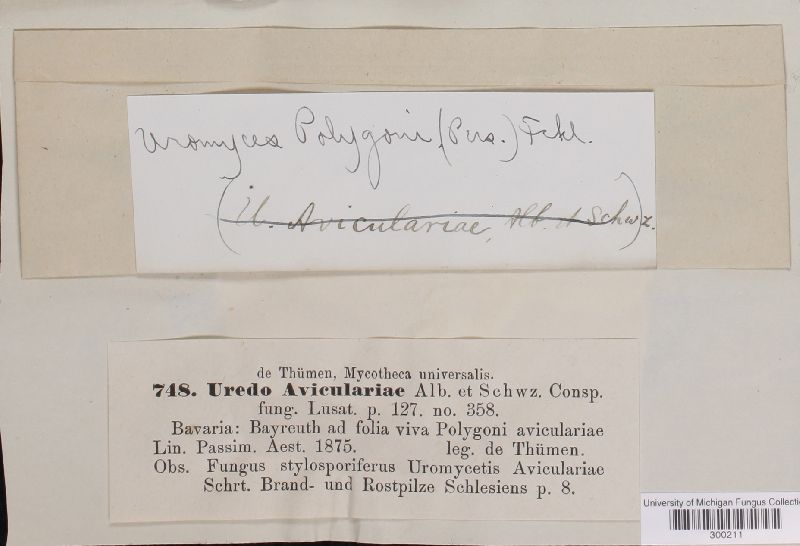 Uromyces Polygoni (Pers.) Fckl.
(U. Aviculariae, Alb. et Schwz.)
de Thümen, Mycotheca universalis.
748. Uredo Aviculariae Alb. et Schwz. Consp.
fung. Lusat. p. 127. no. 358.
Bavaria: Bayreuth ad folia viva Polygoni aviculariae
Lin. Passim. Aest. 1875. leg. de Thümen.
Obs. Fungus stylosporiferus Uromycetis Aviculariae
Schrt. Brand- und Rostpilze Schlesiens p. 8.
University of Michigan Fungus Collectio
300211